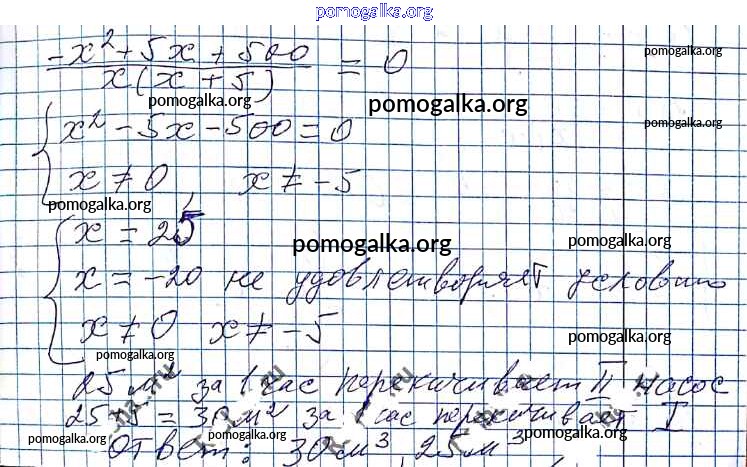 pomogalka.org
pomogalka.org
-x² + 5x + 500 / x(x + 5) = 0
pomogalka.org pomogalka.org
pomogalka.org
x² - 5x - 500 = 0
x ≠ 0, x ≠ -5
pomogalka.org
x = 25
pomogalka.org pomogalka.org
x = -20 не удовлетворяет условию
x ≠ 0 x ≠ -5
pomogalka.org
pomogalka.org
25 м³ за 1 час перекачивает II насос
25+5 = 30 м² за 1 час перекачивает I
pomogalka.org pomogalka.org pomogalka.org
Ответ: 30 м³ 25 м³